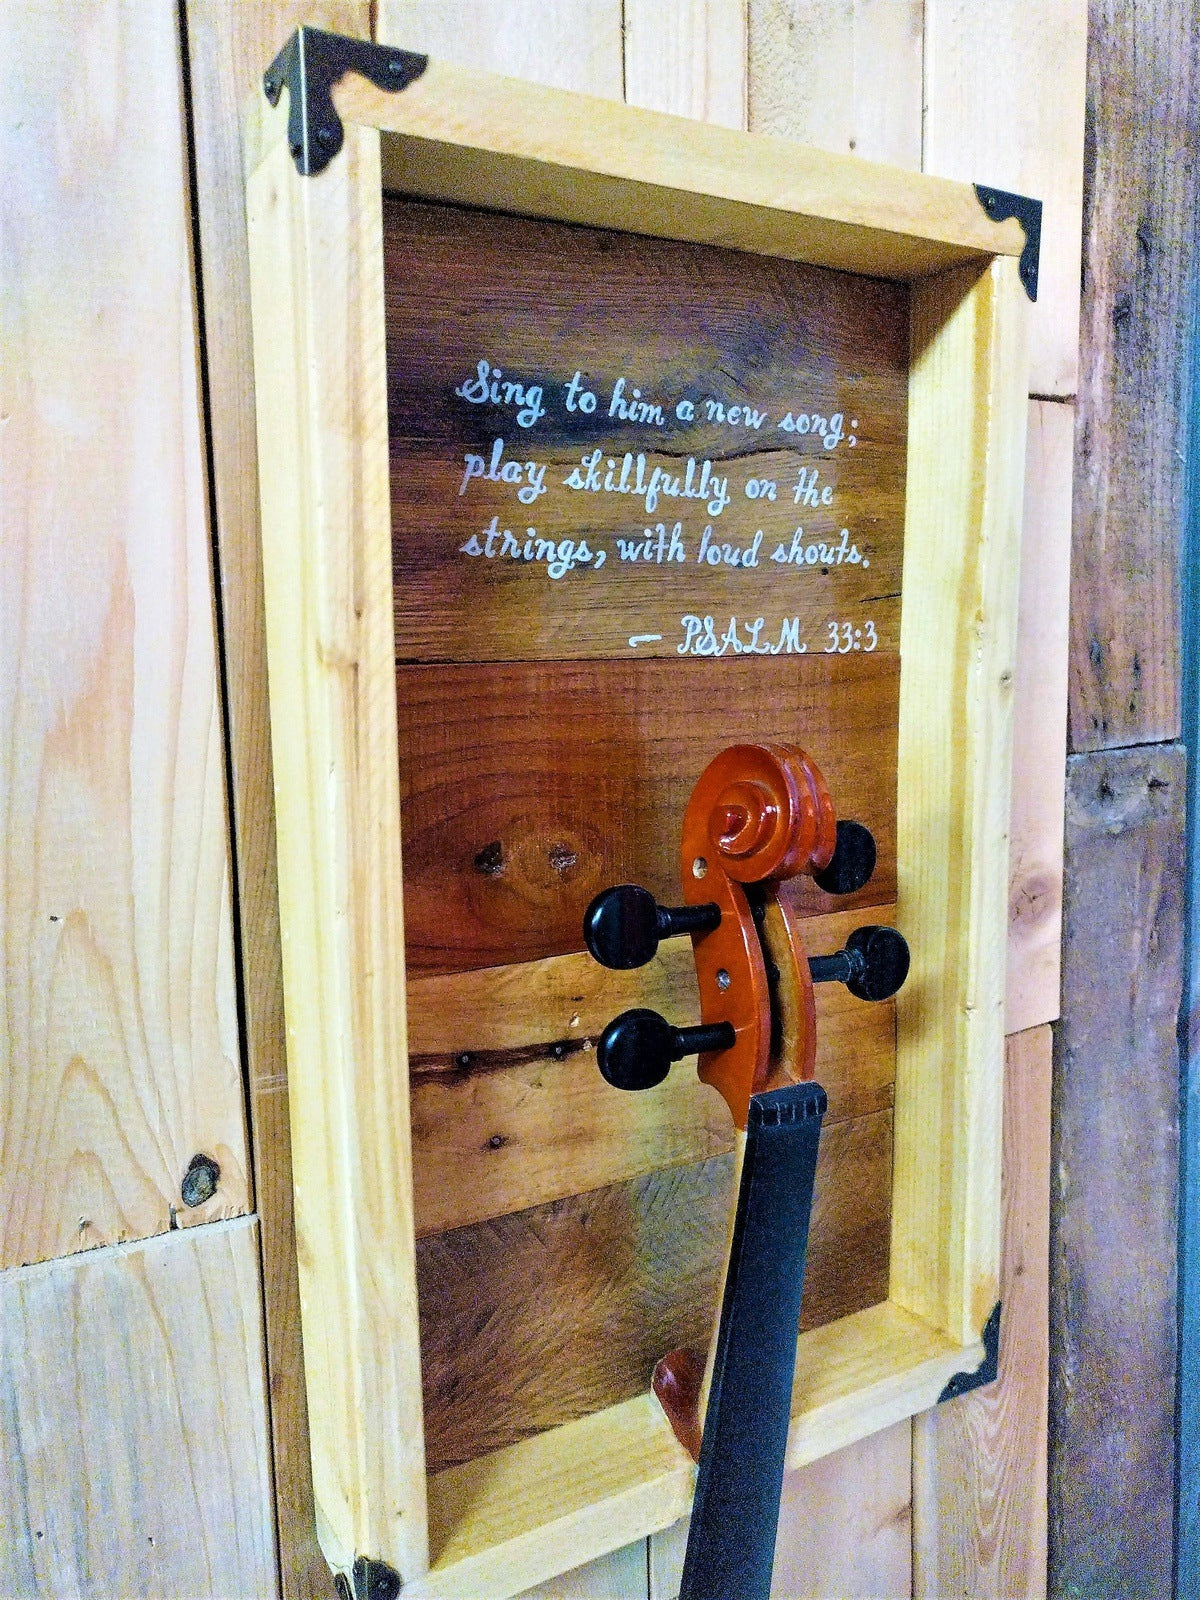 Sing to him a new song;
play skillfully on the
strings, with loud shouts.
— PSALM 33:3